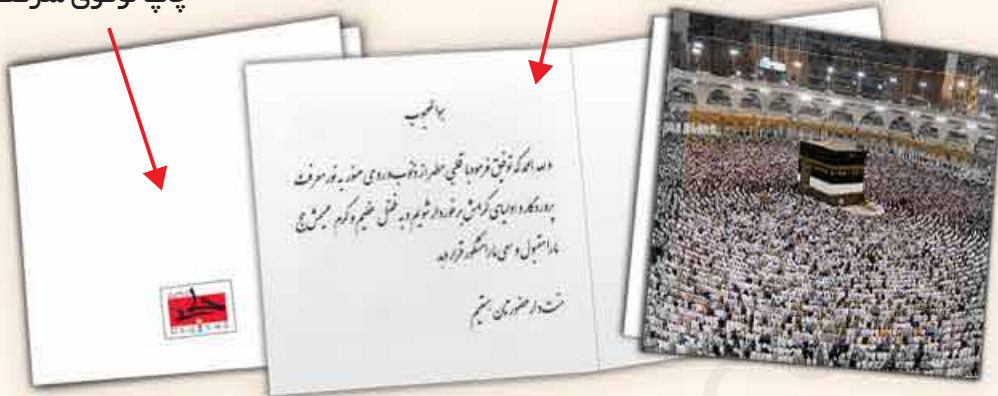 چاپ لوگوی شرکت
هوالمحبوب
و لله الحمد که توفیق فرمود با قلبی مطهر از ذنوب و روی منور به نور معرفت
پروردگار و اولیای کرامش برخوردار شویم و به فضل عظیم و کرم عمیمش حج
ما را مقبول و سعی ما را مشکور قرار دهد
منت دار حضورتان هستیم